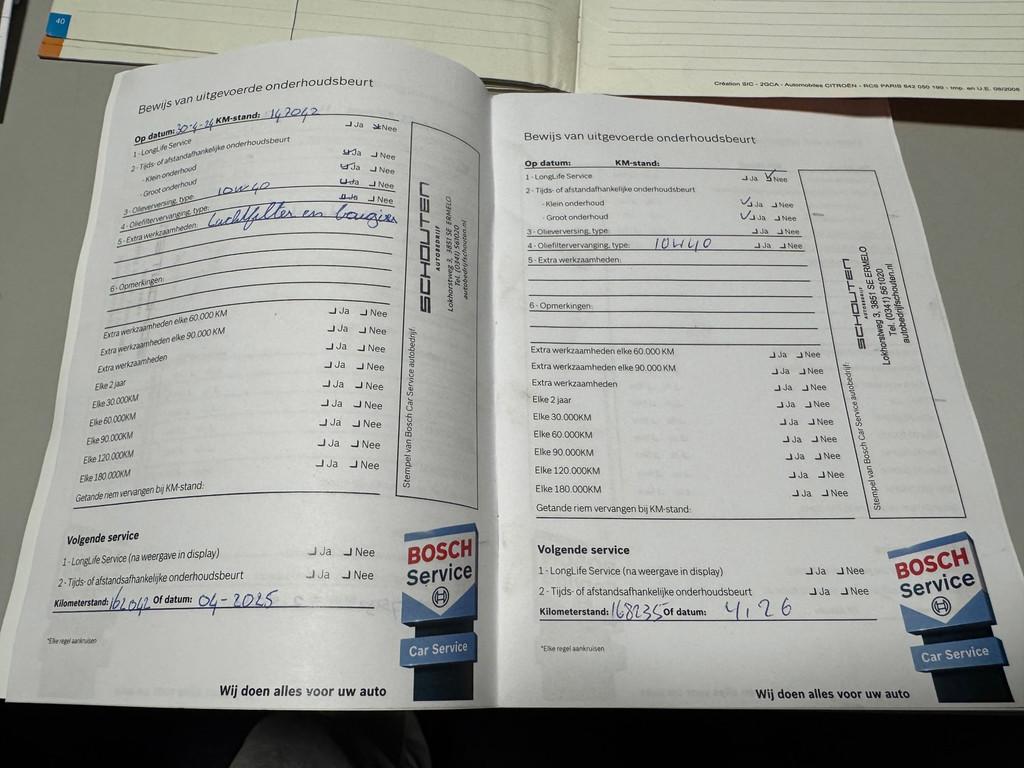 40
Création SIC - 2GCA - Automobiles CITROËN - RCS PARIS 642 050 199 - Imp. en U.E. 09/2008
Bewijs van uitgevoerde onderhoudsbeurt
Op datum: 30-4-24 KM-stand: 142042
1 - LongLife Service Ja Nee
2 - Tijds- of afstandafhankelijke onderhoudsbeurt
- Klein onderhoud Ja Nee
- Groot onderhoud Ja Nee
3 - Olieverversing, type: 10W40 Ja Nee
4 - Oliefiltervervanging, type: Ja Nee
5 - Extra werkzaamheden: Luchtfilter en bougies
6 - Opmerkingen:
Extra werkzaamheden elke 60.000 KM Ja Nee
Extra werkzaamheden elke 90.000 KM Ja Nee
Extra werkzaamheden Ja Nee
Elke 2 jaar Ja Nee
Elke 30.000KM Ja Nee
Elke 60.000KM Ja Nee
Elke 90.000KM Ja Nee
Elke 120.000KM Ja Nee
Elke 180.000KM Ja Nee
Getande riem vervangen bij KM-stand:
Stempel van Bosch Car Service autobedrijf:
SCHOUTEN
AUTOBEDRIJF
Lokhorstweg 3, 3851 SE ERMELO
Tel. (0341) 561020
autobedrijfschouten.nl
Volgende service
1 - LongLife Service (na weergave in display) Ja Nee
2 - Tijds- of afstandsafhankelijke onderhoudsbeurt Ja Nee
Kilometerstand: 162042 Of datum: 04-2025
*Elke regel aankruisen
BOSCH
Service
Car Service
Wij doen alles voor uw auto
Bewijs van uitgevoerde onderhoudsbeurt
Op datum: KM-stand:
1 - LongLife Service Ja Nee
2 - Tijds- of afstandafhankelijke onderhoudsbeurt
- Klein onderhoud Ja Nee
- Groot onderhoud Ja Nee
3 - Olieverversing, type: Ja Nee
4 - Oliefiltervervanging, type: 10W40 Ja Nee
5 - Extra werkzaamheden:
6 - Opmerkingen:
Extra werkzaamheden elke 60.000 KM Ja Nee
Extra werkzaamheden elke 90.000KM Ja Nee
Extra werkzaamheden Ja Nee
Elke 2 jaar Ja Nee
Elke 30.000KM Ja Nee
Elke 60.000KM Ja Nee
Elke 90.000KM Ja Nee
Elke 120.000KM Ja Nee
Elke 180.000KM Ja Nee
Getande riem vervangen bij KM-stand:
Stempel van Bosch Car Service autobedrijf:
SCHOUTEN
AUTOBEDRIJF
Lokhorstweg 3, 3851 SE ERMELO
Tel. (0341) 561020
autobedrijfschouten.nl
Volgende service
1 - LongLife Service (na weergave in display) Ja Nee
2 - Tijds- of afstandsafhankelijke onderhoudsbeurt Ja Nee
Kilometerstand: 168235 Of datum: 4, 26
*Elke regel aankruisen
BOSCH
Service
Car Service
Wij doen alles voor uw auto